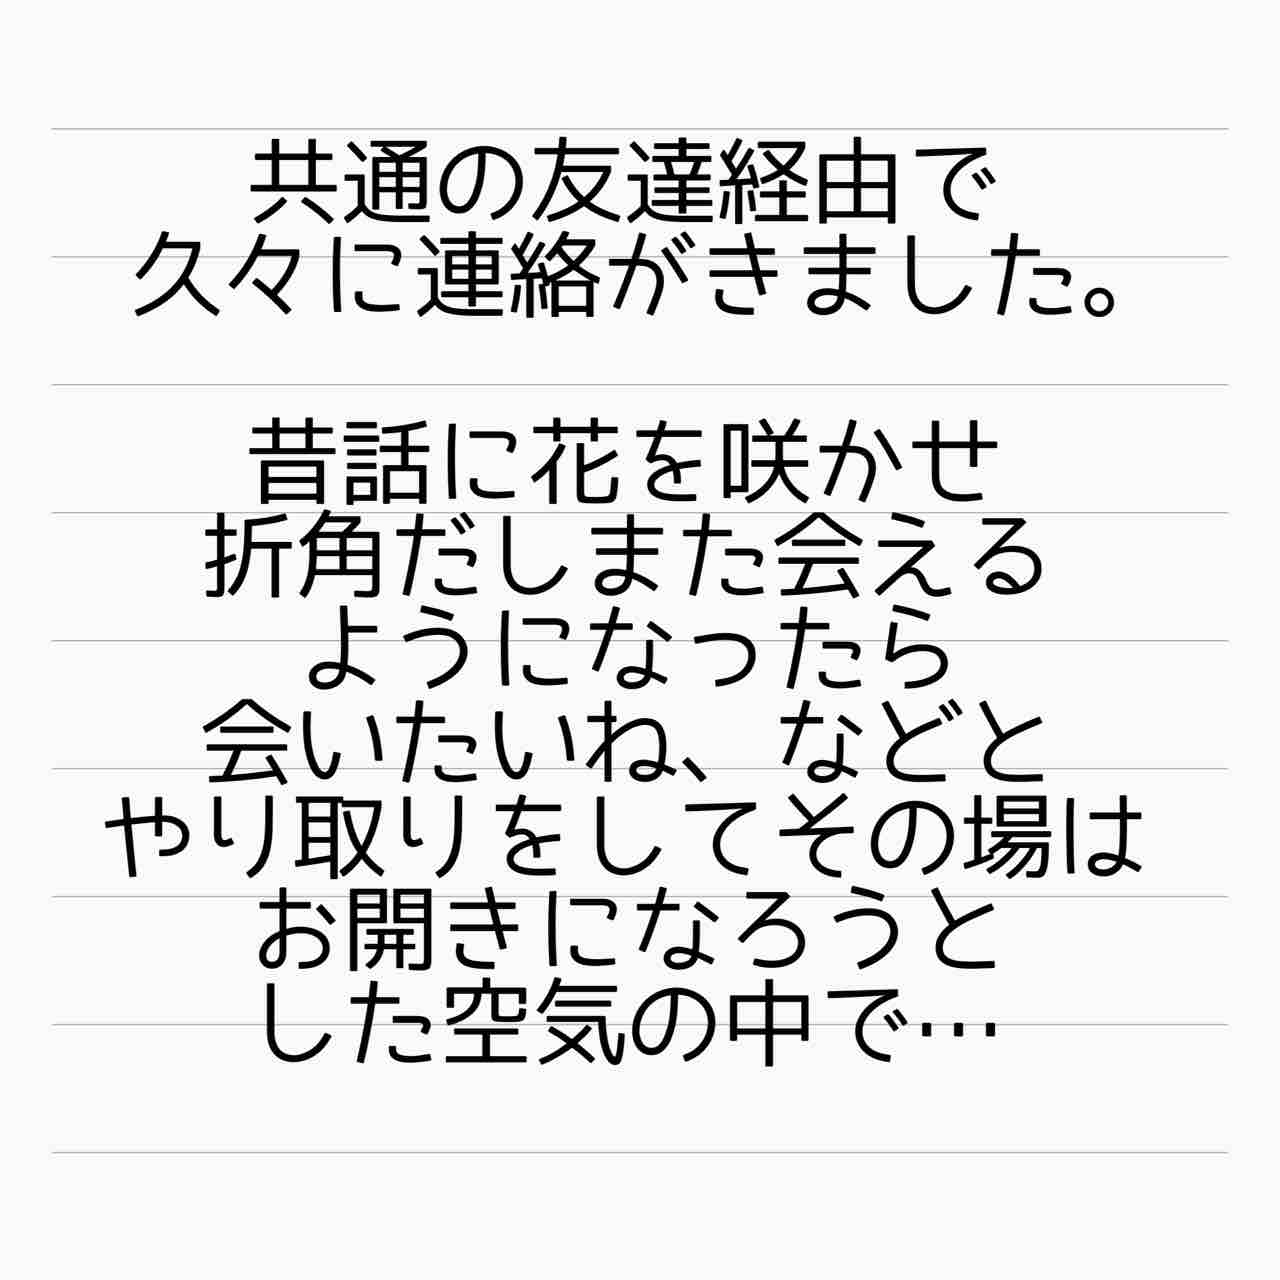 共通の友達経由で
久々に連絡がきました。
昔話に花を咲かせ
折角だしまた会える
ようになったら
会いたいね、などと
やり取りをしてその場は
お開きになろうと
した空気の中で…